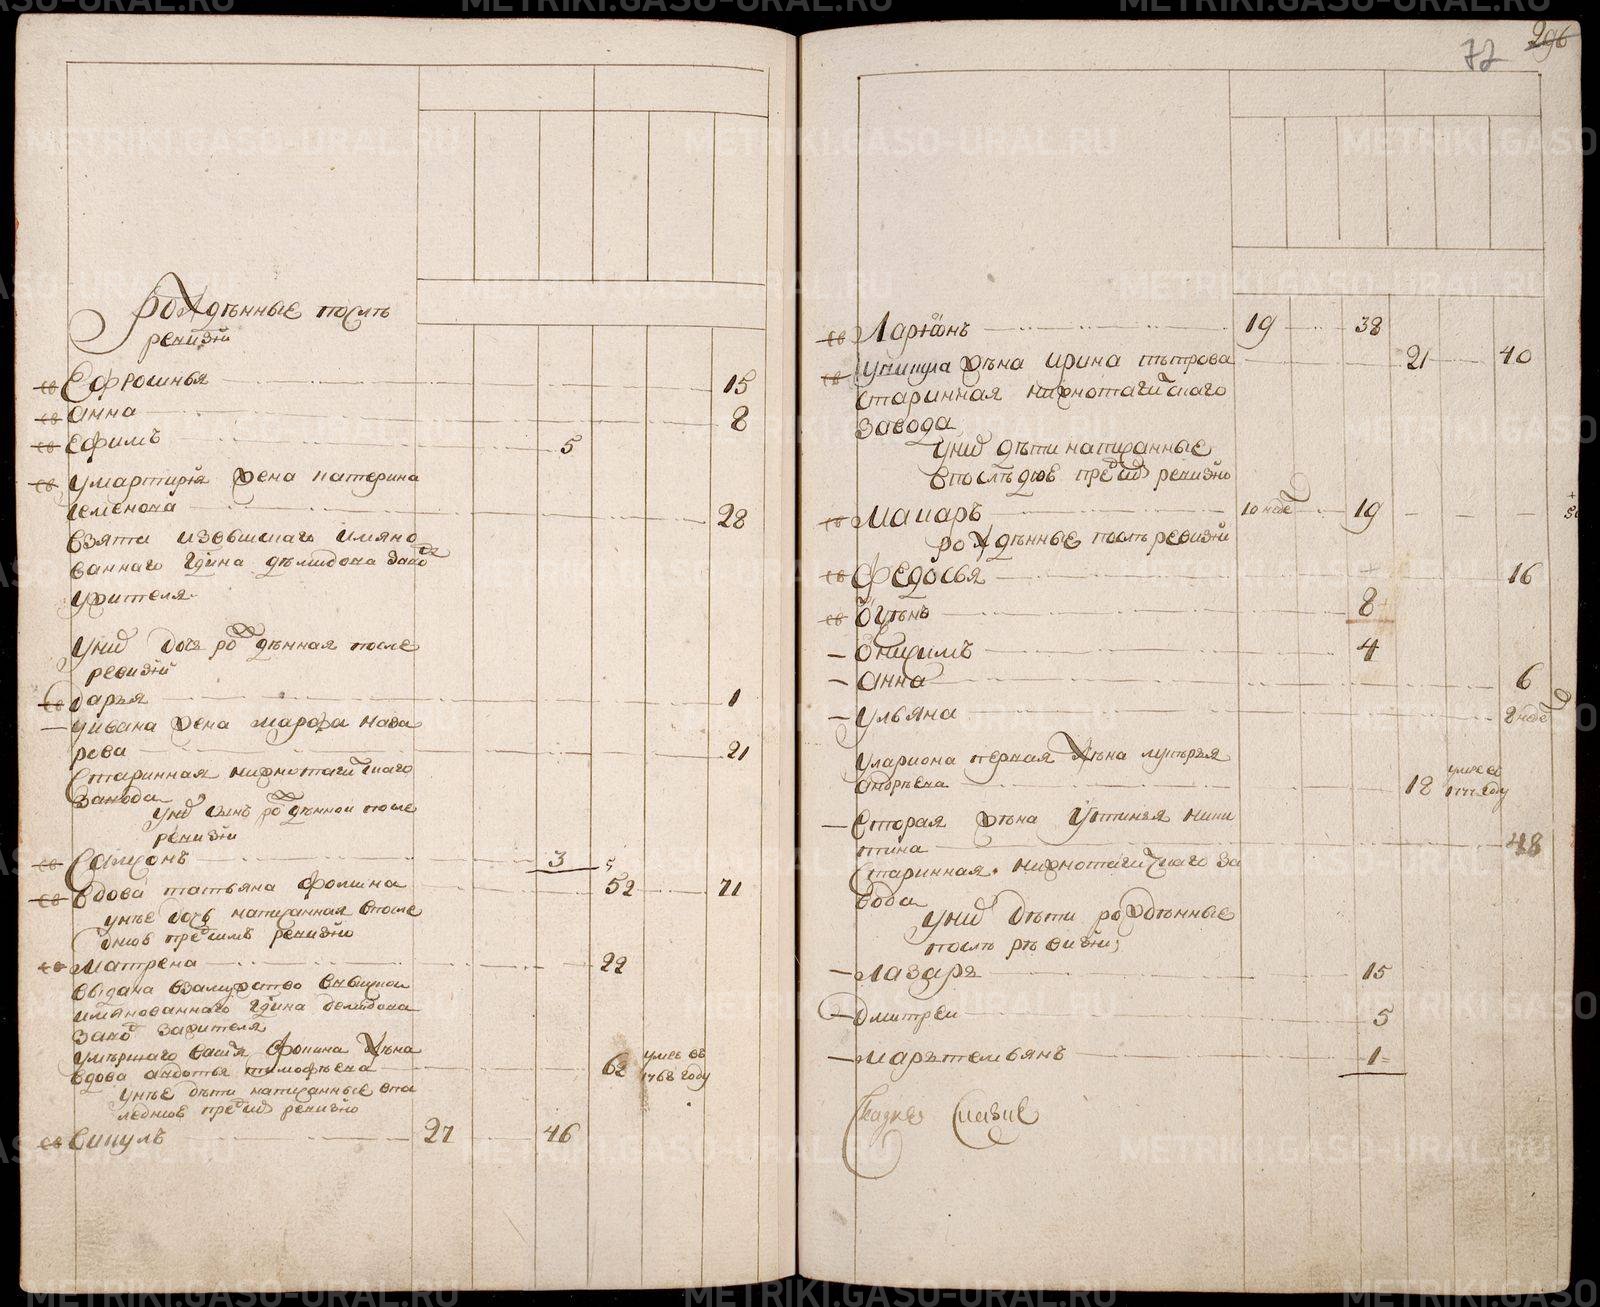 72
296
Рожденные после
ревизіи
Ефросинья 15
Анна 8
Ефимъ 5
У мартирія жена катерина
семенова 28
взята изъ вышеимяно
ваннаго Гдина демидова заво
жителя
у них дочь рожденная после
ревизіи
дарья 1
У ивана жена марфа наза
рева 21
старинная нижнотагилскаго
завода
у них сынъ рожденной после
ревизіи
Самсонъ 3
вдова татьяна фомина 52 71
у нее дочь написанная в после
днюю пред симъ ревизию
матрена 22
выдана в замужство в вышеи
имянованнаго Гдина демидова
заво жителя
умершаго жена
вдова авдотья тимофеева 62 умре въ
1768 году
у нее дети написанные в по
следнюю пред сим ревизию
Викулъ 27 46
Ларионъ 19 38
У викула жена ирина петрова 21 40
старинная нижнотагилскаго
завода
у них дети написанные
в последнюю пред сим ревизию
Макаръ 10 неде 19
рожденные после ревизіи
федосья 16
8
Онисимъ 4
Анна 6
Ульяна 2 неде
У лариона первая жена лукерья
андреева 18 умре въ
1777 году
Вторая жена Устинья ники
тина 48
старинная нижнотагилскаго за
вода
у них дети рожденные
после ревизіи
Лазарь 15
Дмитреи 5
Маръетемьянъ 1
METRIKI.GASO-URAL.RU